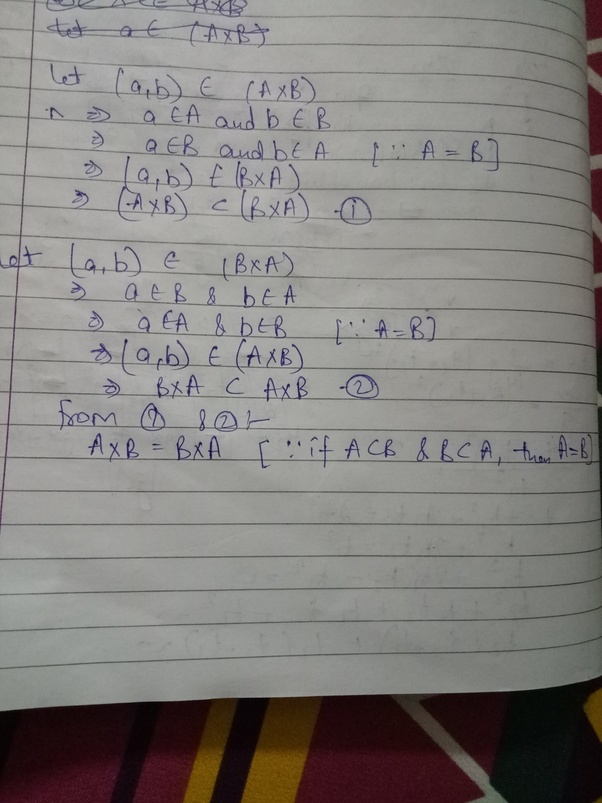 let a ∈ (A×B)
let (a,b) ∈ (A×B)
⇒ a ∈ A and b ∈ B
⇒ a ∈ B and b ∈ A [∵ A = B]
⇒ (a,b) ∈ (B×A)
⇒ (A×B) ⊂ (B×A) -①
let (a,b) ∈ (B×A)
⇒ a ∈ B & b ∈ A
⇒ a ∈ A & b ∈ B [∵ A=B]
⇒ (a,b) ∈ (A×B)
⇒ B×A ⊂ A×B -②
from ① & ② :-
A×B = B×A [∵ if A⊂B & B⊂A, then A=B]